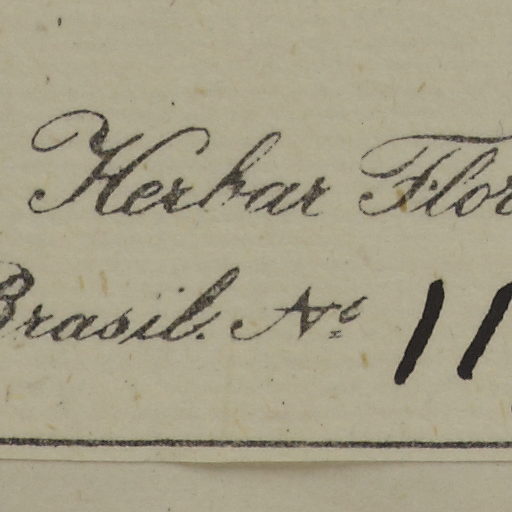 Herbar Flor
Brasil. No 11